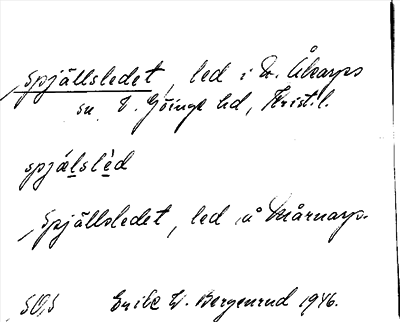 Spjällsledet, led i N. Åkarps
sn V. Göinge hd, Kristil.
spjálslèd
Spjällsledet, led å Mårnarp.
Bergenrud 1946.